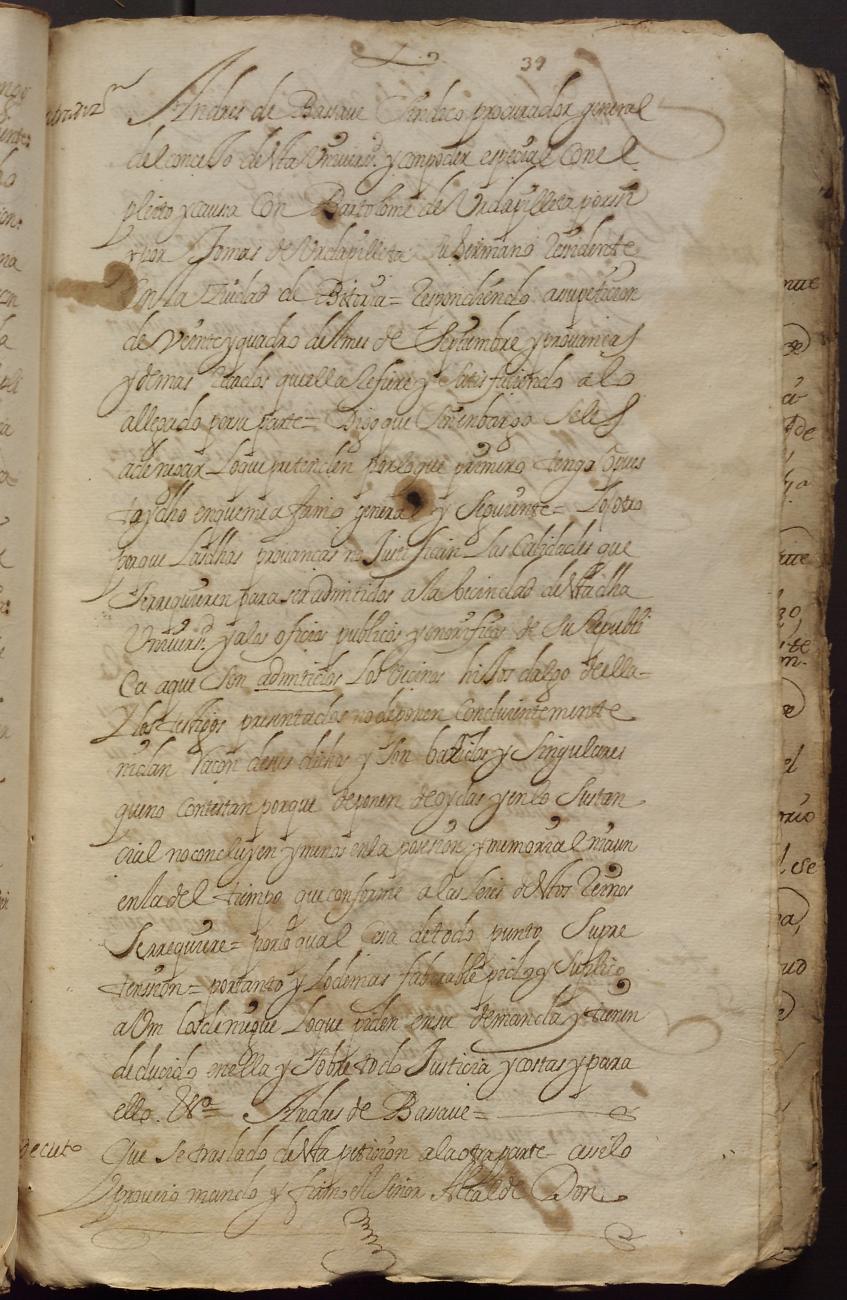 39
Andres de Basaue Sindico procurador general
del concejo desta Vniuersd. y compoder especial Con el
pleito y causa Con Bartolome de Vrdapilleta por si y
Tomas de Vrdapilleta su hermano Residente
En la Ciudad de Bitoria = Respondiendo asupeticion
de Veinte y quadro del mes de Septiembre y prouanças
y demas Recados quella Refiere y satisfaciendo a lo
allegado por su parte = Digo que Sinenbargo Seles
a denegar Lo que pretenden por lo que primero tengo
dicho general y Siguiente = Lo otro
porque Las dhas prouancas no Justifican Las Calidades que
Serrequieren para ser admitidos a la becindad desta dha
Vniuersd. y a los oficios publicos y onorificos de Su Republi
Ca aque Son admitidos Los Vecinos hijos dalgo della =
Y los testigos presentados no deponen Concluientemente
nidan Raçon de sus dichos y Son barios y Singulares
queno Contestan porque deponen de oydas y en lo Sustan
cial no concluyen y menos en la posesion ynmemorial niaun
enladel tiempo que conforme a las leies destos Reinos
Serrequiere = por lo qual Cesa de todo punto Su pre
tension = por tanto y Lo demas faborable pido y Suplico
a Vm los deniegue Lo que piden en su demanda y tienen
deducido en ella y Sobre todo Justicia y costas y para
ello. &a = Andres de Basaue =
decreto
Que se de traslado desta peticion a la otra parte assilo
proueio mando y firmo el Señor Alcalde Don